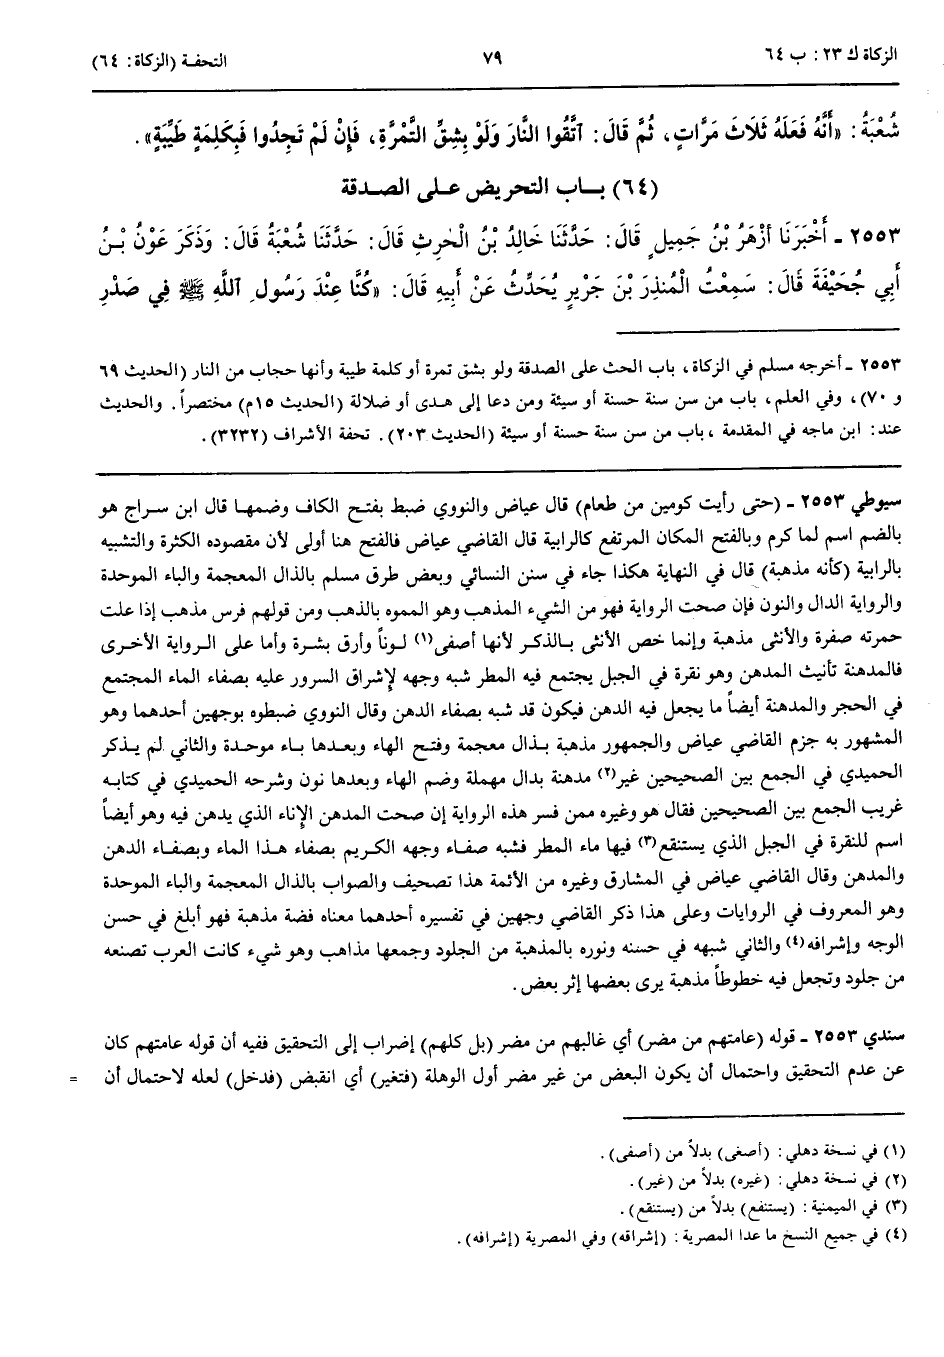 الزكاة ك ٢٣: ب ٦٤
٧٩
التحفة (الزكاة: ٦٤)
شُعْبَةُ: «أَنَّهُ فَعَلَهُ ثَلَاثَ مَرَّاتٍ، ثُمَّ قَالَ: ٱتَّقُوا النَّارَ وَلَوْ بِشِقِّ التَّمْرَةِ، فَإِنْ لَمْ تَجِدُوا فَبِكَلِمَةٍ طَيِّبَةٍ».
(٦٤) بـاب التحريض علـى الصـدقة
٢٥٥٣ ـ أَخْبَرَنَا أَزْهَرُ بْنُ جَمِيلٍ قَالَ: حَدَّثَنَا خَالِدُ بْنُ الْحٰرِثِ قَالَ: حَدَّثَنَا شُعْبَةُ قَالَ: وَذَكَرَ عَوْنُ بْـنُ
أَبِي جُحَيْفَةَ قَالَ: سَمِعْتُ الْمُنذِرَ بْنَ جَرِيرٍ يُحَدِّثُ عَنْ أَبِيهِ قَالَ: «كُنَّا عِنْدَ رَسُولِ ٱللَّهِ ﷺ فِي صَدْرِ
٢٥٥٣ ـ أخرجه مسلم في الزكاة، باب الحث على الصدقة ولو بشق تمرة أو كلمة طيبة وأنها حجاب من النار (الحديث ٦٩
و ٧٠)، وفي العلم، باب من سن سنة حسنة أو سيئة ومن دعا إلى هـدى أو ضلالة (الحديث ١٥م) مختصراً. والحديث
عند: ابن ماجه في المقدمة، باب من سن سنة حسنة أو سيئة (الحديث ٢٠٣). تحفة الأشراف (٣٢٣٢).
سيوطي ٢٥٥٣ ـ (حتى رأيت كومين من طعام) قال عياض والنووي ضبط بفتـح الكاف وضمهـا قال ابن سـراج هو
بالضم اسم لما كرم وبالفتح المكان المرتفع كالرابية قال القاضي عياض فالفتح هنا أولى لأن مقصوده الكثرة والتشبيه
بالرابية (كأنه مذهبة) قال في النهاية هكذا جاء في سنن النسائي وبعض طرق مسلم بالذال المعجمة والباء الموحدة
والرواية الدال والنون فإن صحت الرواية فهو من الشيء المذهب وهو المموه بالذهب ومن قولهم فرس مذهب إذا علت
حمرته صفرة والأنثى مذهبة وإنما خص الأنثى بـالذكـر لأنها أصفى(١) لـوناً وأرق بشـرة وأما على الـرواية الأخـرى
فالمدهنة تأنيث المدهن وهو نقرة في الجبل يجتمع فيه المطر شبه وجهه لإشراق السرور عليه بصفاء الماء المجتمع
في الحجر والمدهنة أيضاً ما يجعل فيه الدهن فيكون قد شبه بصفاء الدهن وقال النووي ضبطوه بوجهين أحدهما وهو
المشهور به جزم القاضي عياض والجمهور مذهبة بـذال معجمة وفتـح الهاء وبعـدها بـاء موحـدة والثاني لم يـذكر
الحميدي في الجمع بين الصحيحين غير(٢) مدهنة بدال مهملة وضم الهاء وبعدها نون وشرحه الحميدي في كتابـه
غريب الجمع بين الصحيحين فقال هو وغيره ممن فسر هذه الرواية إن صحت المدهن الإناء الذي يدهن فيه وهو أيضاً
اسم للنقرة في الجبل الذي يستنقع(٣) فيها ماء المطر فشبه صفـاء وجهه الكـريم بصفاء هـذا الماء وبصفـاء الدهن
والمدهن وقال القاضي عياض في المشارق وغيره من الأئمة هذا تصحيف والصواب بالذال المعجمة والباء الموحدة
وهو المعروف في الروايات وعلى هذا ذكر القاضي وجهين في تفسيره أحدهما معناه فضة مذهبة فهو أبلغ في حسن
الوجه وإشرافه(٤) والثاني شبهه في حسنه ونوره بالمذهبة من الجلود وجمعها مذاهب وهو شيء كانت العرب تصنعه
من جلود وتجعل فيه خطوطاً مذهبة يرى بعضها إثر بعض.
سندي ٢٥٥٣ ـ قوله (عامتهم من مضر) أي غالبهم من مضر (بل كلهم) إضراب إلى التحقيق ففيه أن قوله عامتهم كان
عن عدم التحقيق واحتمال أن يكون البعض من غير مضر أول الوهلة (فتغير) أي انقبض (فدخل) لعله لاحتمال أن =
(١) في نسخة دهلي: (أصغى) بدلاً من (أصفى).
(٢) في نسخة دهلي: (غيره) بدلاً من (غير).
(٣) في الميمنية: (يستنفع) بدلاً من (يستنقع).
(٤) في جميع النسخ ما عدا المصرية: (إشراقه) وفي المصرية (إشرافه).